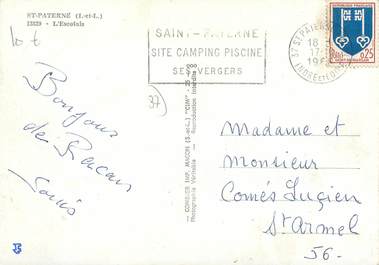 ST-PATERNE (I.-et-L.)
13829 - L'Escotais
10 t
SAINT - PATERNE
SITE CAMPING PISCINE
SES VERGERS
37 ST PATERNE
18
17
19
INDRE ET LOIRE
REPUBLIQUE FRANÇAISE
0,25
37)
Bonjour
de Racan
Louis
COMBIER IMP. MACON (S.-et-L.) "CIM"
Photographie Véritable - Reproduction interdite
Madame et
monsieur
Comés Lucien
St Armel
56.